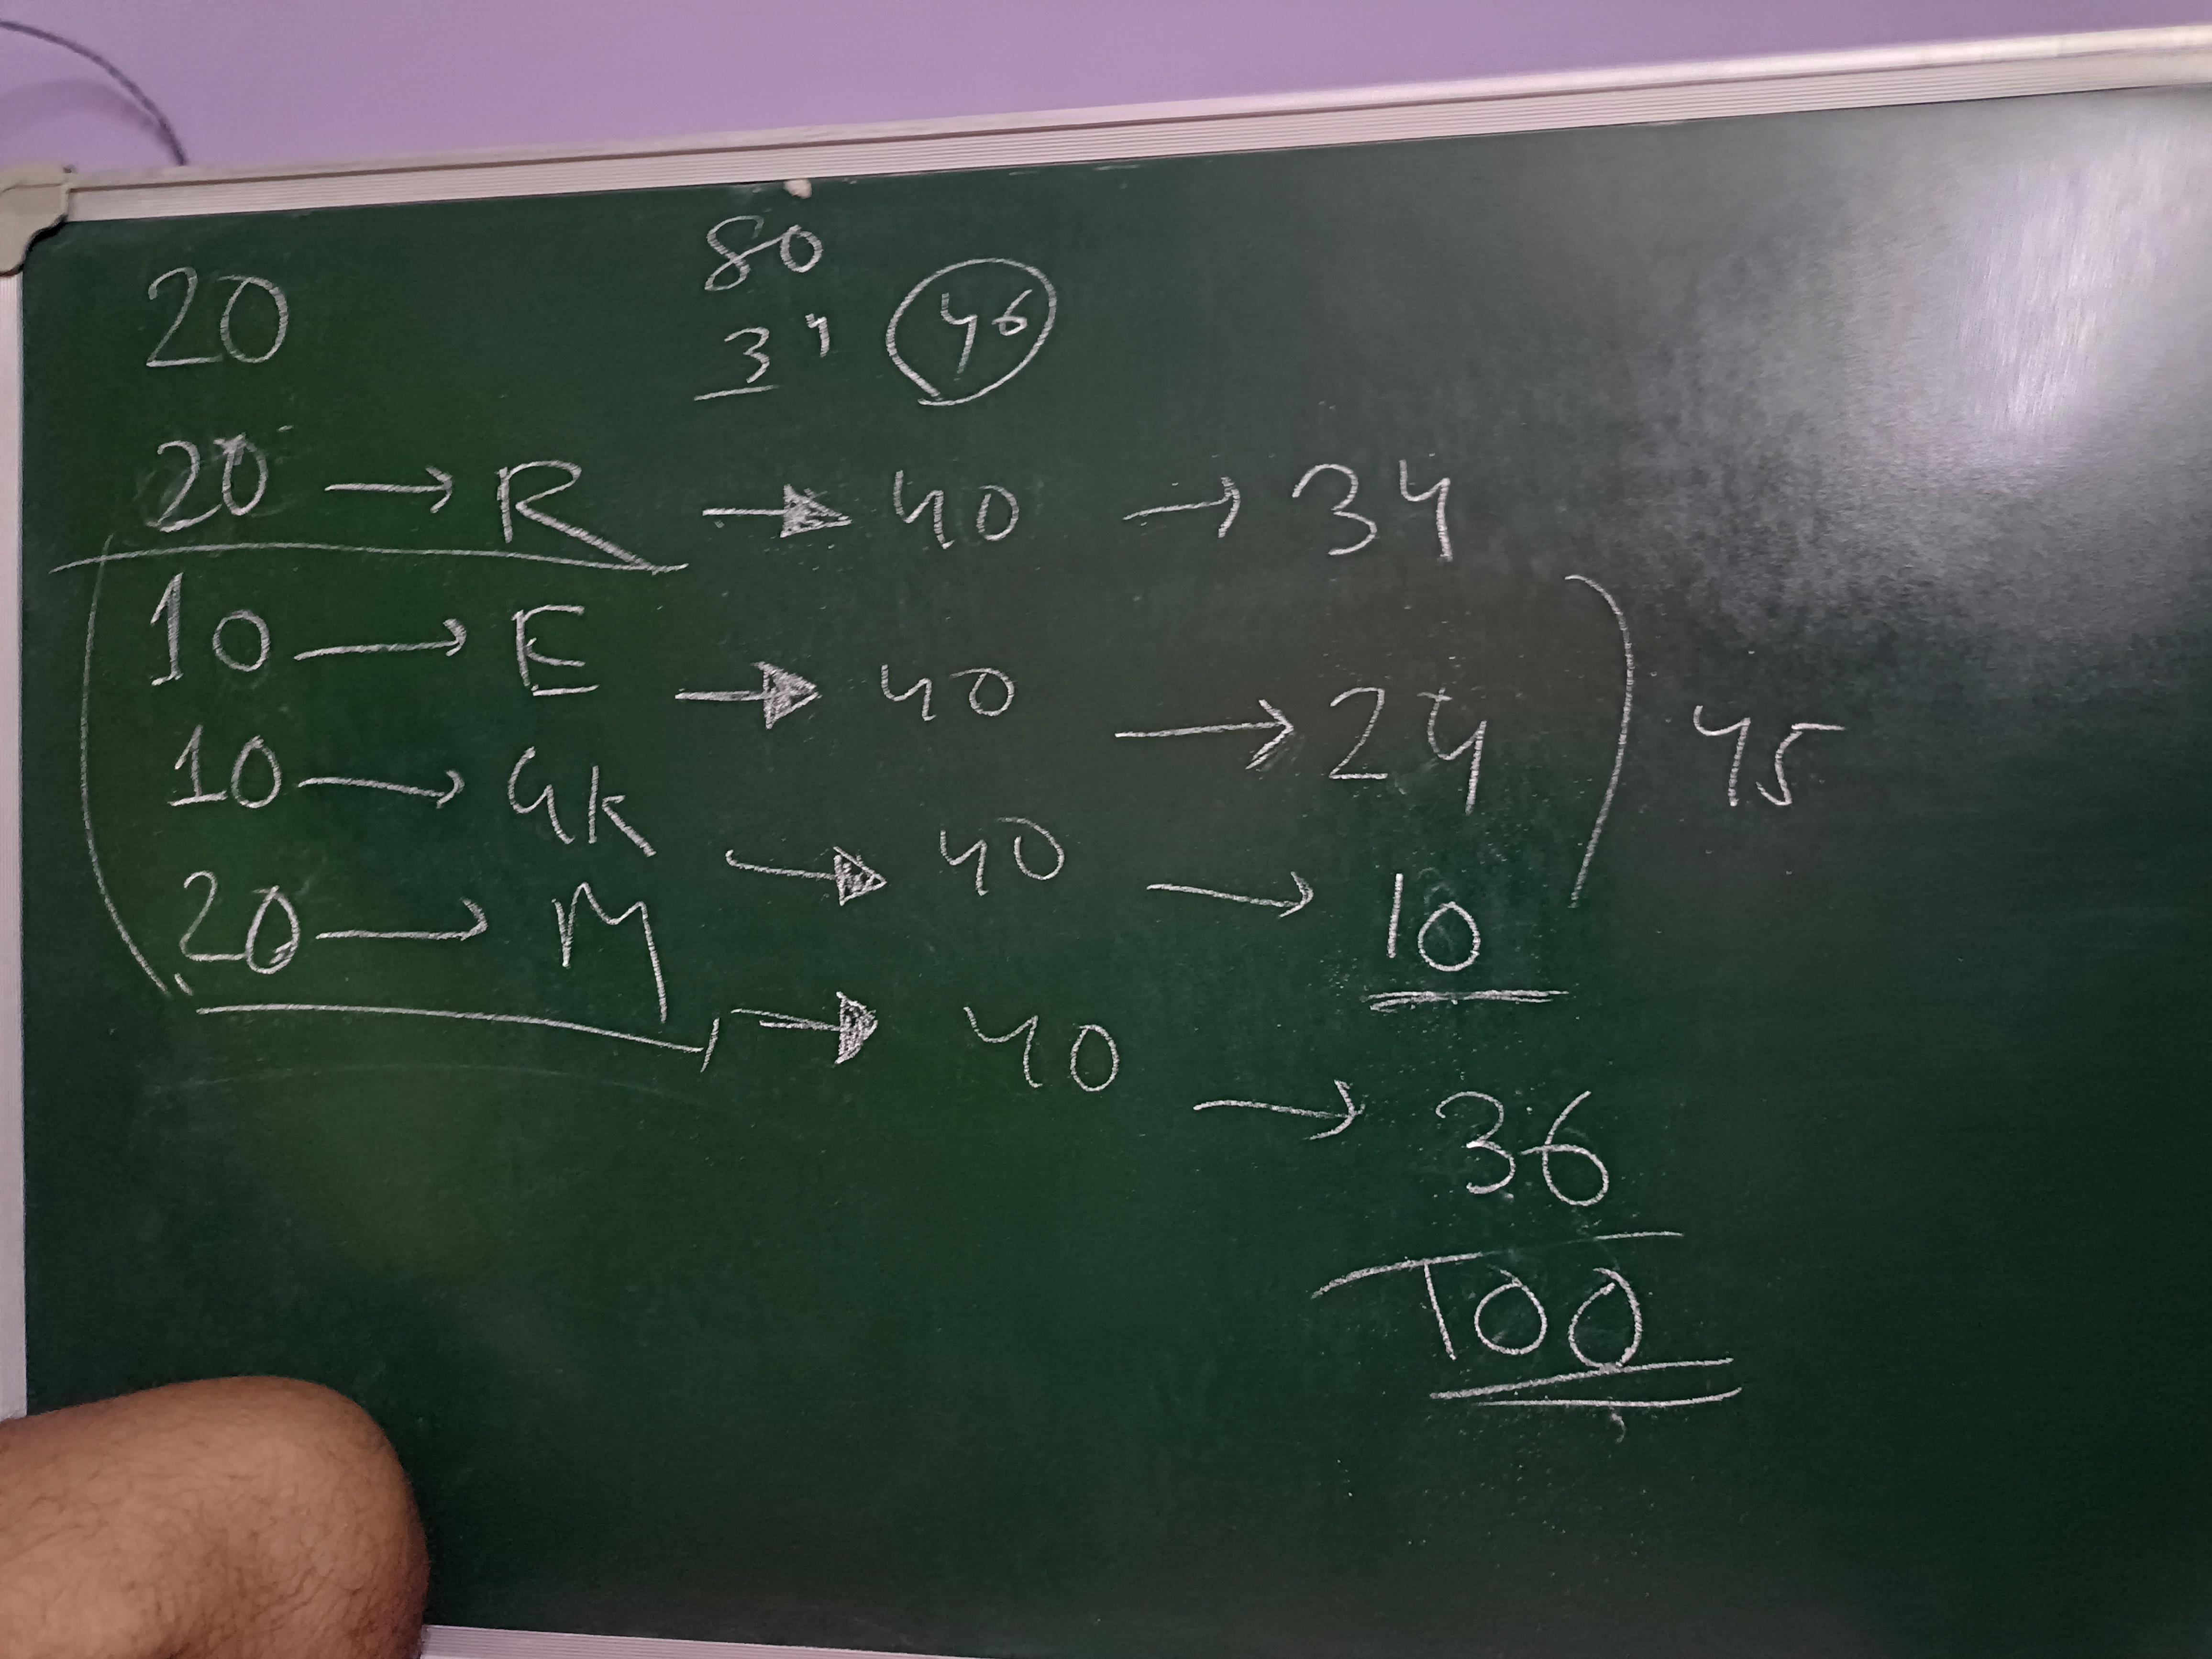 80
20
34 46
20 → R → 40 → 34
10 → E → 40 → 24
45
10 → GK → 40 → 10
20 → M → 40 → 36
100